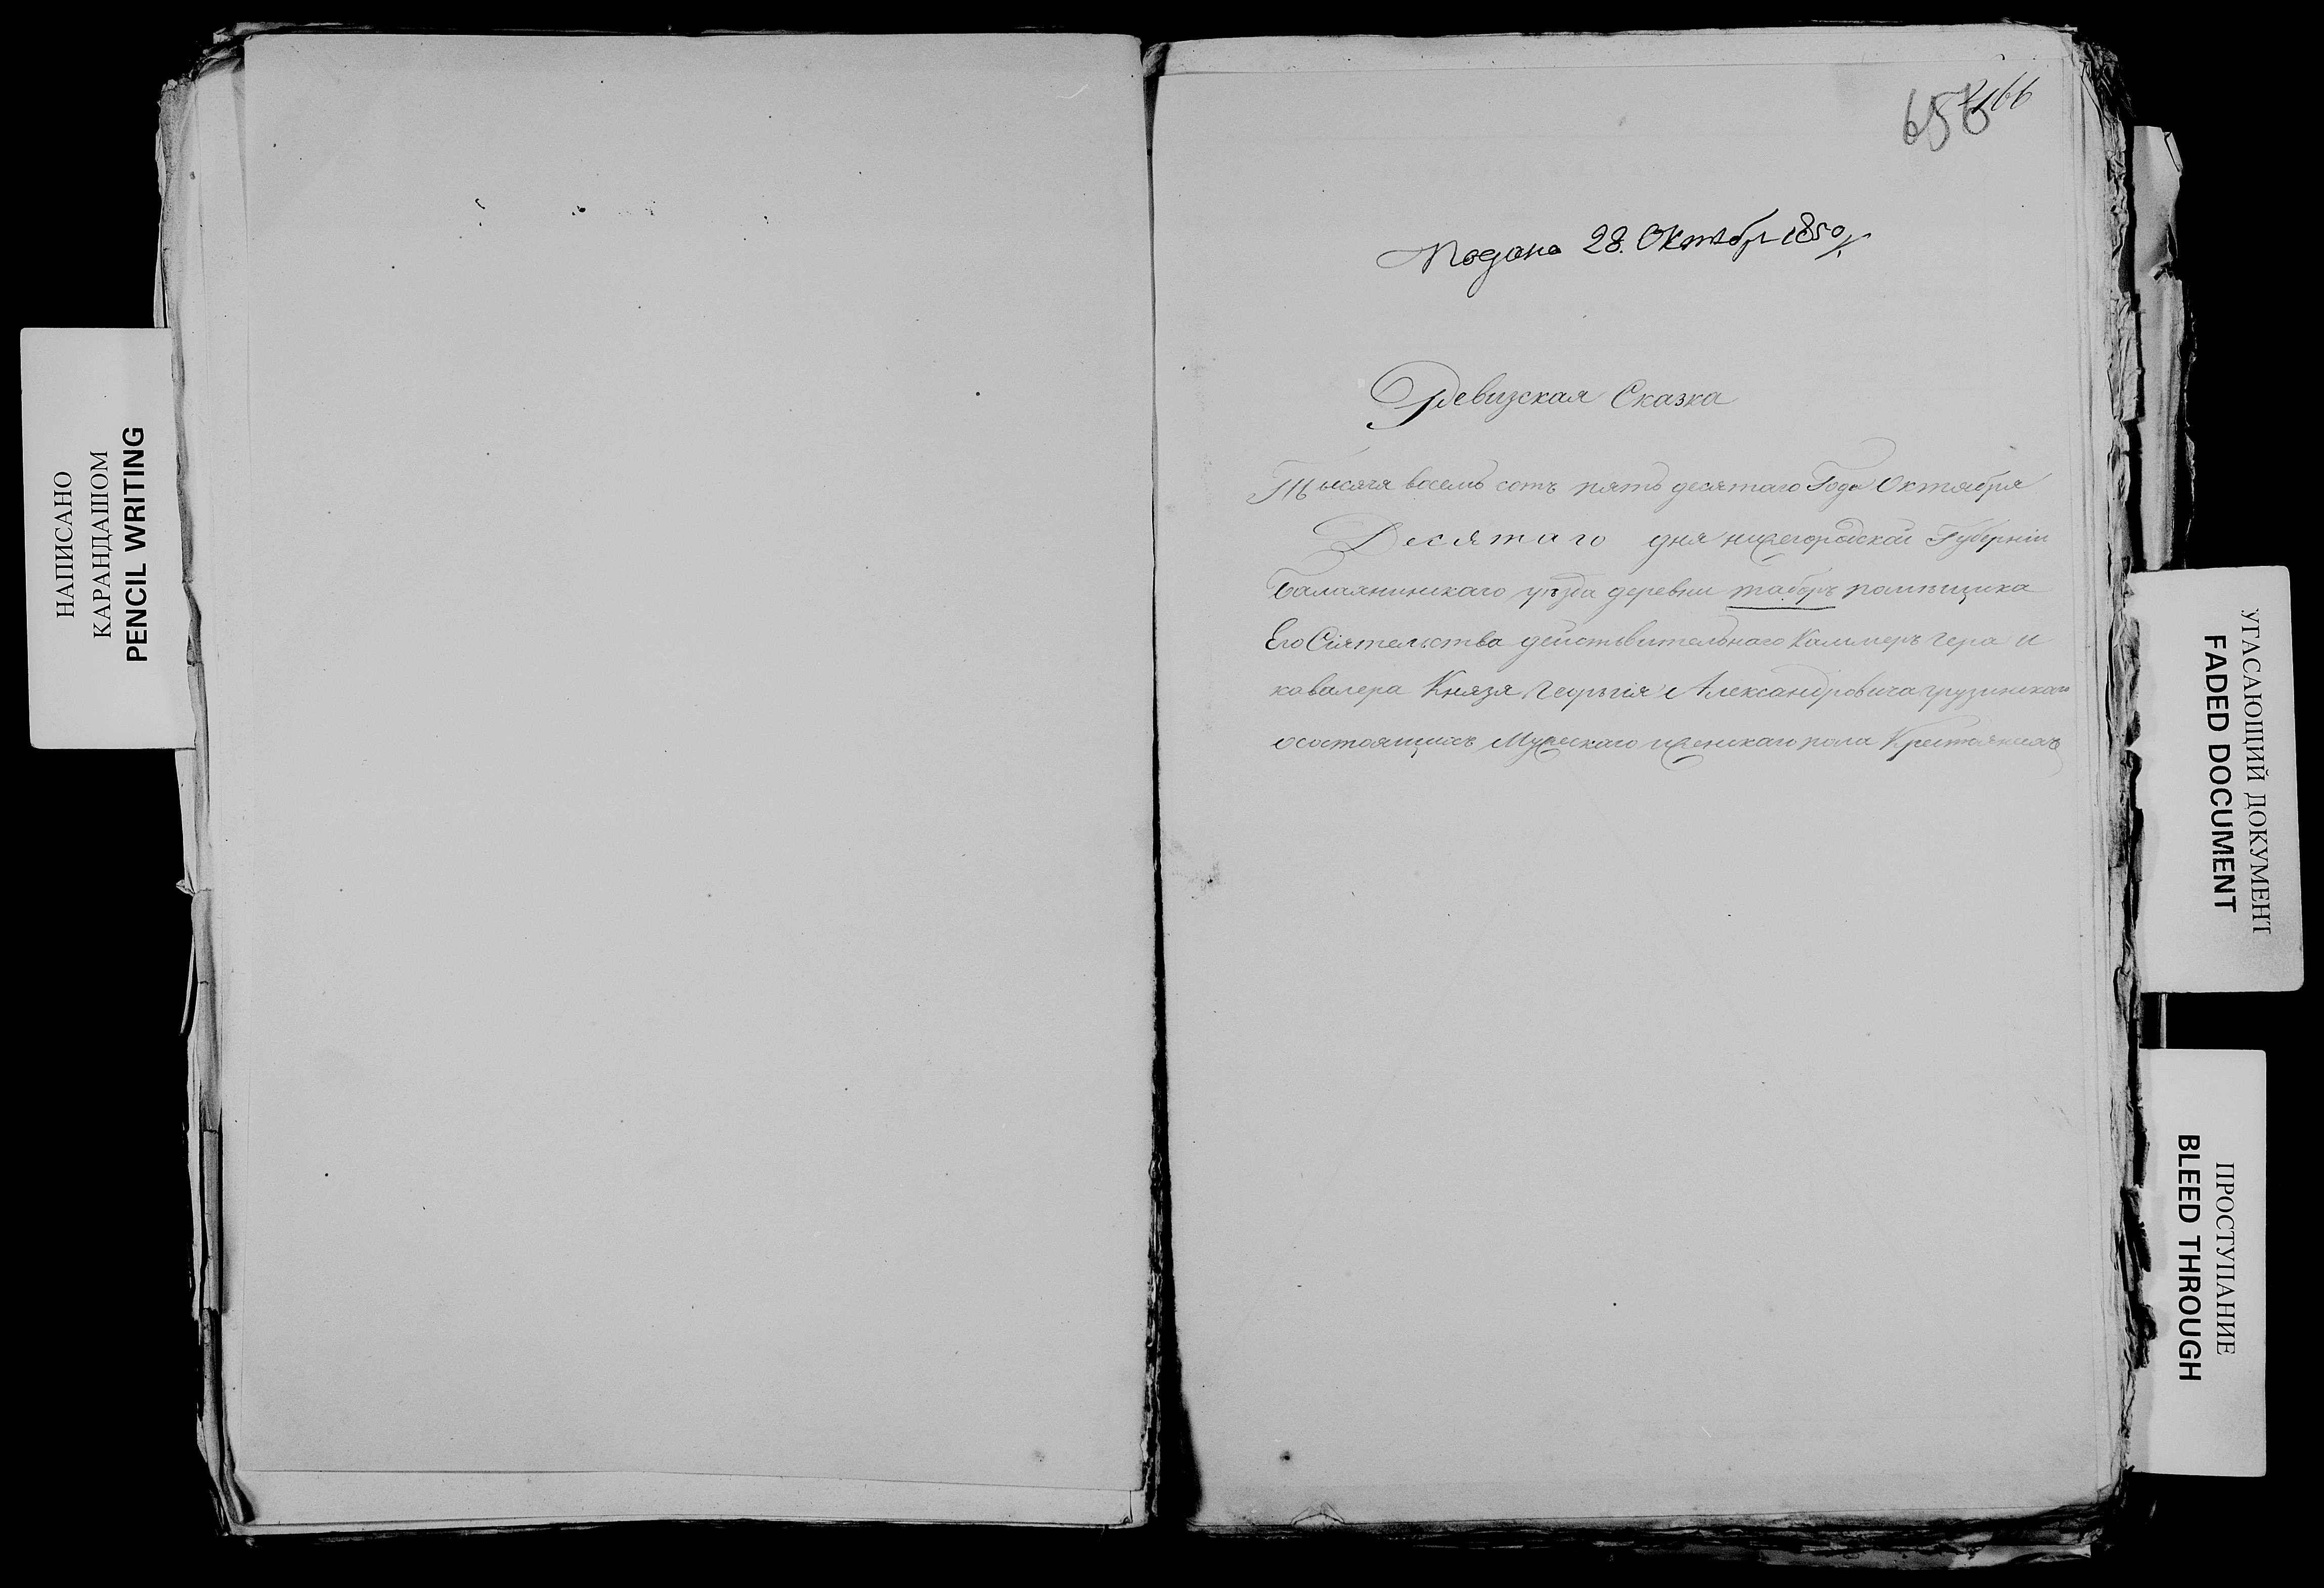 НАПИСАНО
КАРАНДАШОМ
PENCIL WRITING
656
Подана 28. Октябр 1850
Ревизская Сказка
Тысяча восемь сотъ пять десятаго Года Октября
Десятаго дня нижегородской Губерніи
Балахнинскаго уѣзда деревни таборъ помѣщика
Его Сіятельства дѣйствительнаго Каммеръ гера и
кавалера Князя Георгія Александровича грузинскаго
о состоящихъ Мужескаго и женскаго пола Крестьянехъ
УГАСАЮЩИЙ ДОКУМЕНТ
FADED DOCUMENT
ПРОСТУПАНИЕ
BLEED THROUGH